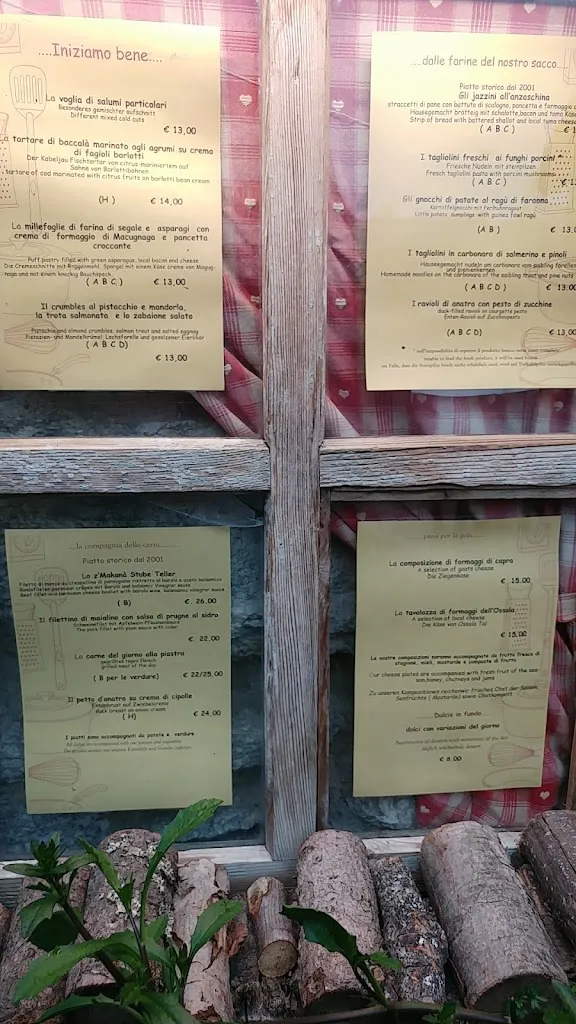 ....Iniziamo bene....
La voglia di salumi particolari
Besonderes gemischter aufschnitt
Different mixed cold cuts
€ 13,00
La tartare di baccalà marinato agli agrumi su crema
di fagioli borlotti
Der Kabeljau Fischtartar von citrus-mariniertem auf
Sahne von Borlottibohnen
tartare of cod marinated with citrus fruits on borlotti bean cream
(H) € 14,00
La millefoglie di farina di segale e asparagi con
crema di formaggio di Macugnaga e pancetta
croccante
Puff pastry filled with green asparagus, local bacon and cheese
Die Cremeschnitte mit Roggenmehl, Spargel mit einem Käse creme von Macug-
naga und mit einem knackig Bauchspeck
( A B C ) € 13,00
Il crumbles al pistacchio e mandorla,
la trota salmonata e lo zabaione salato
Pistachio and almond crumbles, salmon trout and salted eggnog
Pistazien- und Mandelkrümel Lachsforelle und gesalzener Eierlikör
( A B C D)
€ 13,00
....dalle farine del nostro sacco....
Piatto storico dal 2001
Gli jazzini all'anzaschina
straccetti di pane con battuto di scalogno, pancetta e formaggio
Hausegemacht brotteig mit schalotte, bacon und toma Käse
Strip of bread with battered shallot and local toma cheese
( A B C )
I tagliolini freschi ai funghi porcini *
Frische Nudeln mit steinpilzen
Fresh tagliolini pasta with porcini mushrooms
( A B C )
Gli gnocchi di patate al ragù di faraona
Kartoffelgnocchi mit Perlhuhnragout
Little potato dumplings with guinea fowl ragù
(A B )
I tagliolini in carbonara di salmerino e pinoli
Hausgemacht nudeln am carbonara von saibling forellen
und pinienkernen
Homemade noodles on the carbonara of the saibling trout and pine nuts
( A B C D ) € 13,0
I ravioli di anatra con pesto di zucchine
duck-filled ravioli on courgette pesto
Enten-Ravioli auf Zucchinipesto
(A B C D ) € 13,00
...la compagnia delle carni...
Piatto storico dal 2001
Lo z'Makanà Stube Teller
( B) € . 26,00
Il filettino di maialino con salsa di prugne al sidro
Schweinefilet mit Apfelwein-Pflaumensauce
The pork fillet with plum sauce with cider
€ . 22,00
La carne del giorno alla piastra
gegrilltes tages fleisch
grilled meat of the day
( B per le verdure) € 22/25,00
Il petto d'anatra su crema di cipolle
Entenbrust auf Zwiebelcreme
duck breast on onion cream
( H ) € 24,00
I piatti sono accompagnati da patate e verdure
All dishes are accompanied with our potatoes and vegetables
....pausa per la gola....
La composizione di formaggi di capra
A selection of goats cheese
Die Ziegenkäse
€ . 15,00
La tavolozza di formaggi dell'Ossola
A selection of local cheese
Die Käse von Ossola Tal
€ 15,00
Le nostre composizioni saranno accompagnate da frutta fresca di
stagione, mieli, mostarde e composte di frutta
Our cheese plates are accompanied with fresh fruit of the sea-
son, honey, chutneys and jams
Dulcis in fundo...
dolci con variazioni del giorno
€ 8,00